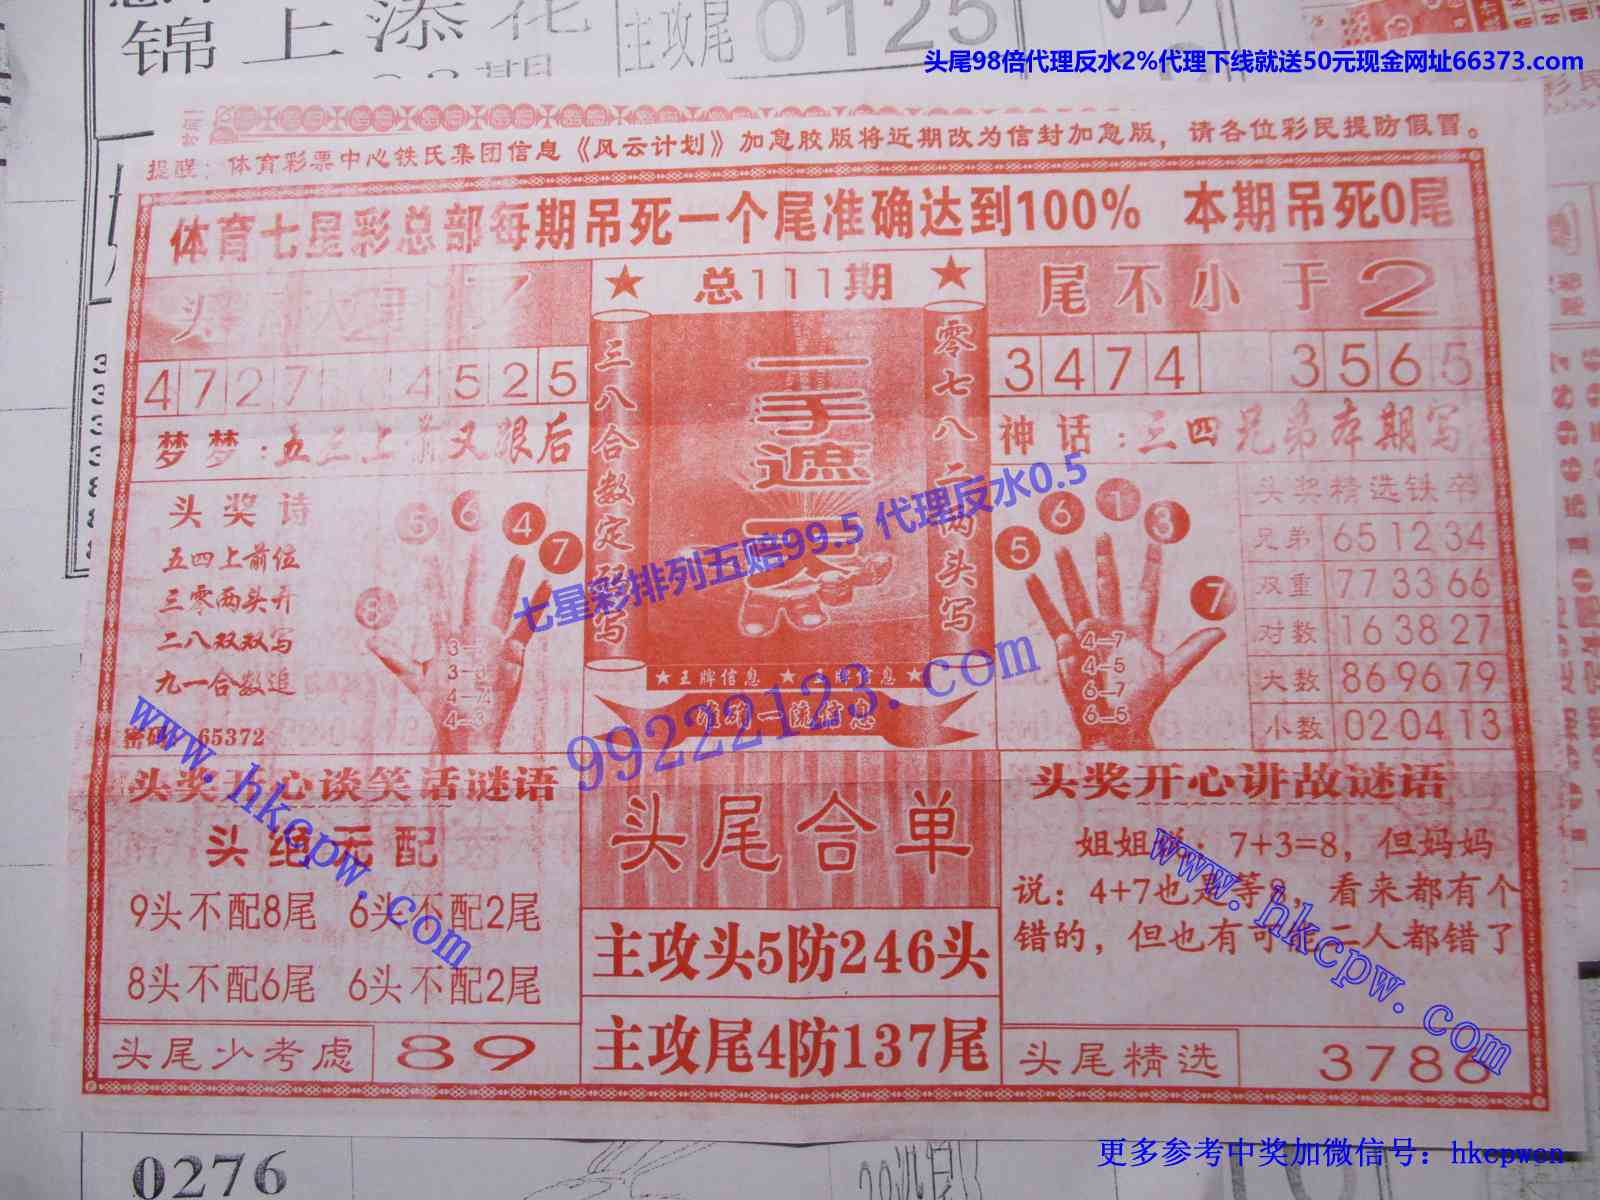 锦上添花
主攻尾 0125
头尾98倍代理反水2%代理下线就送50元现金网址66373.com
提醒：体育彩票中心铁氏集团信息《风云计划》加急胶版将近期改为信封加急版，请各位彩民提防假冒。
体育七星彩总部每期吊死一个尾准确达到100% 本期吊死0尾
头
★ 总111期 ★
尾不小于2
4727 4525
三八合数定
写
一手遮天
零七八二两头写
3474 3565
梦梦：五三上前又跟后
神话：三四兄弟本期写
头奖诗
五四上前位
三零两头开
二八双双写
九一合数追
65372
8 5 6 4 7
3-
3-
4-
4-3
七星彩排列五赔99.5 代理反水0.5
99222123.com
★王牌信息 ★王牌信息★
准确一流信息
5 6 1 3 7
4-7
4-5
6-7
6-5
头奖精选铁卒
兄弟 65 12 34
双重 77 33 66
对数 16 38 27
大数 86 96 79
小数 02 04 13
www.hkcpw.com
头奖开心谈笑话谜语
头绝无配
9头不配8尾 6头不配2尾
8头不配6尾 6头不配2尾
头尾少考虑 89
头尾合单
主攻头5防246头
主攻尾4防137尾
头奖开心讲故谜语
姐姐说：7+3=8，但妈妈
说：4+7也是等8，看来都有个
错的，但也有可能二人都错了
www.hkcpw.com
头尾精选 3786
更多参考中奖加微信号：hkcpwcn
0276